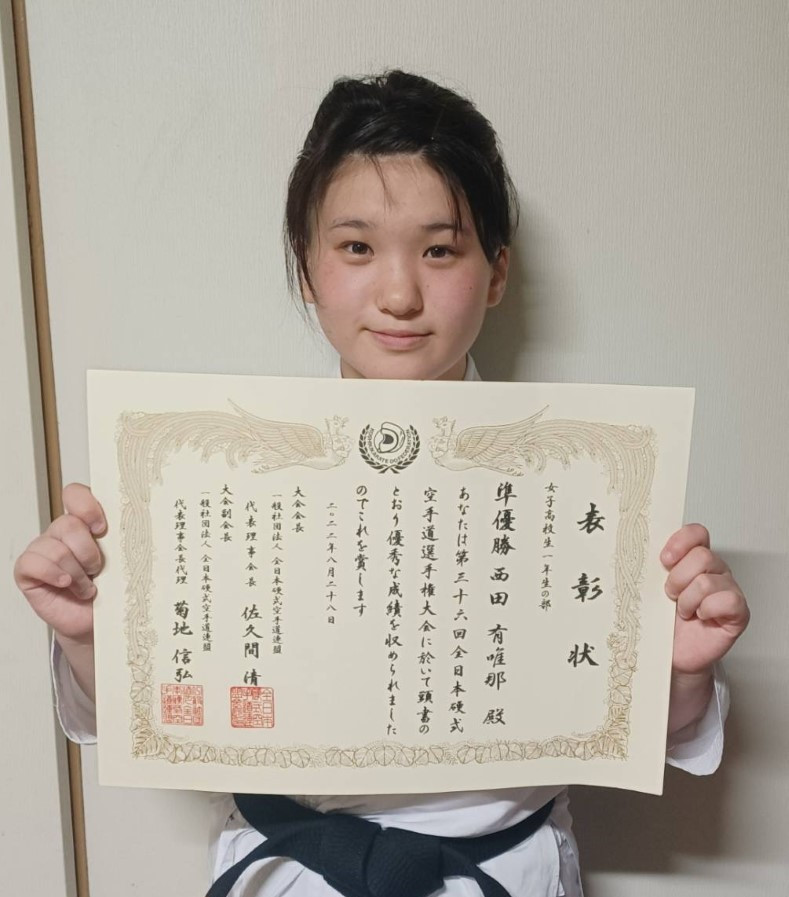 表彰状
女子高校生一年生の部
準優勝 西田 有唯那 殿
あなたは第三十六回全日本硬式
空手道選手権大会に於いて頭書の
とおり優秀な成績を収められました
のでこれを賞します
二〇二二年八月二十八日
大会会長
一般社団法人 全日本硬式空手道連盟
代表理事会長 佐久間 清
大会副会長
一般社団法人 全日本硬式空手道連盟
代表理事会長代理 菊地 信弘